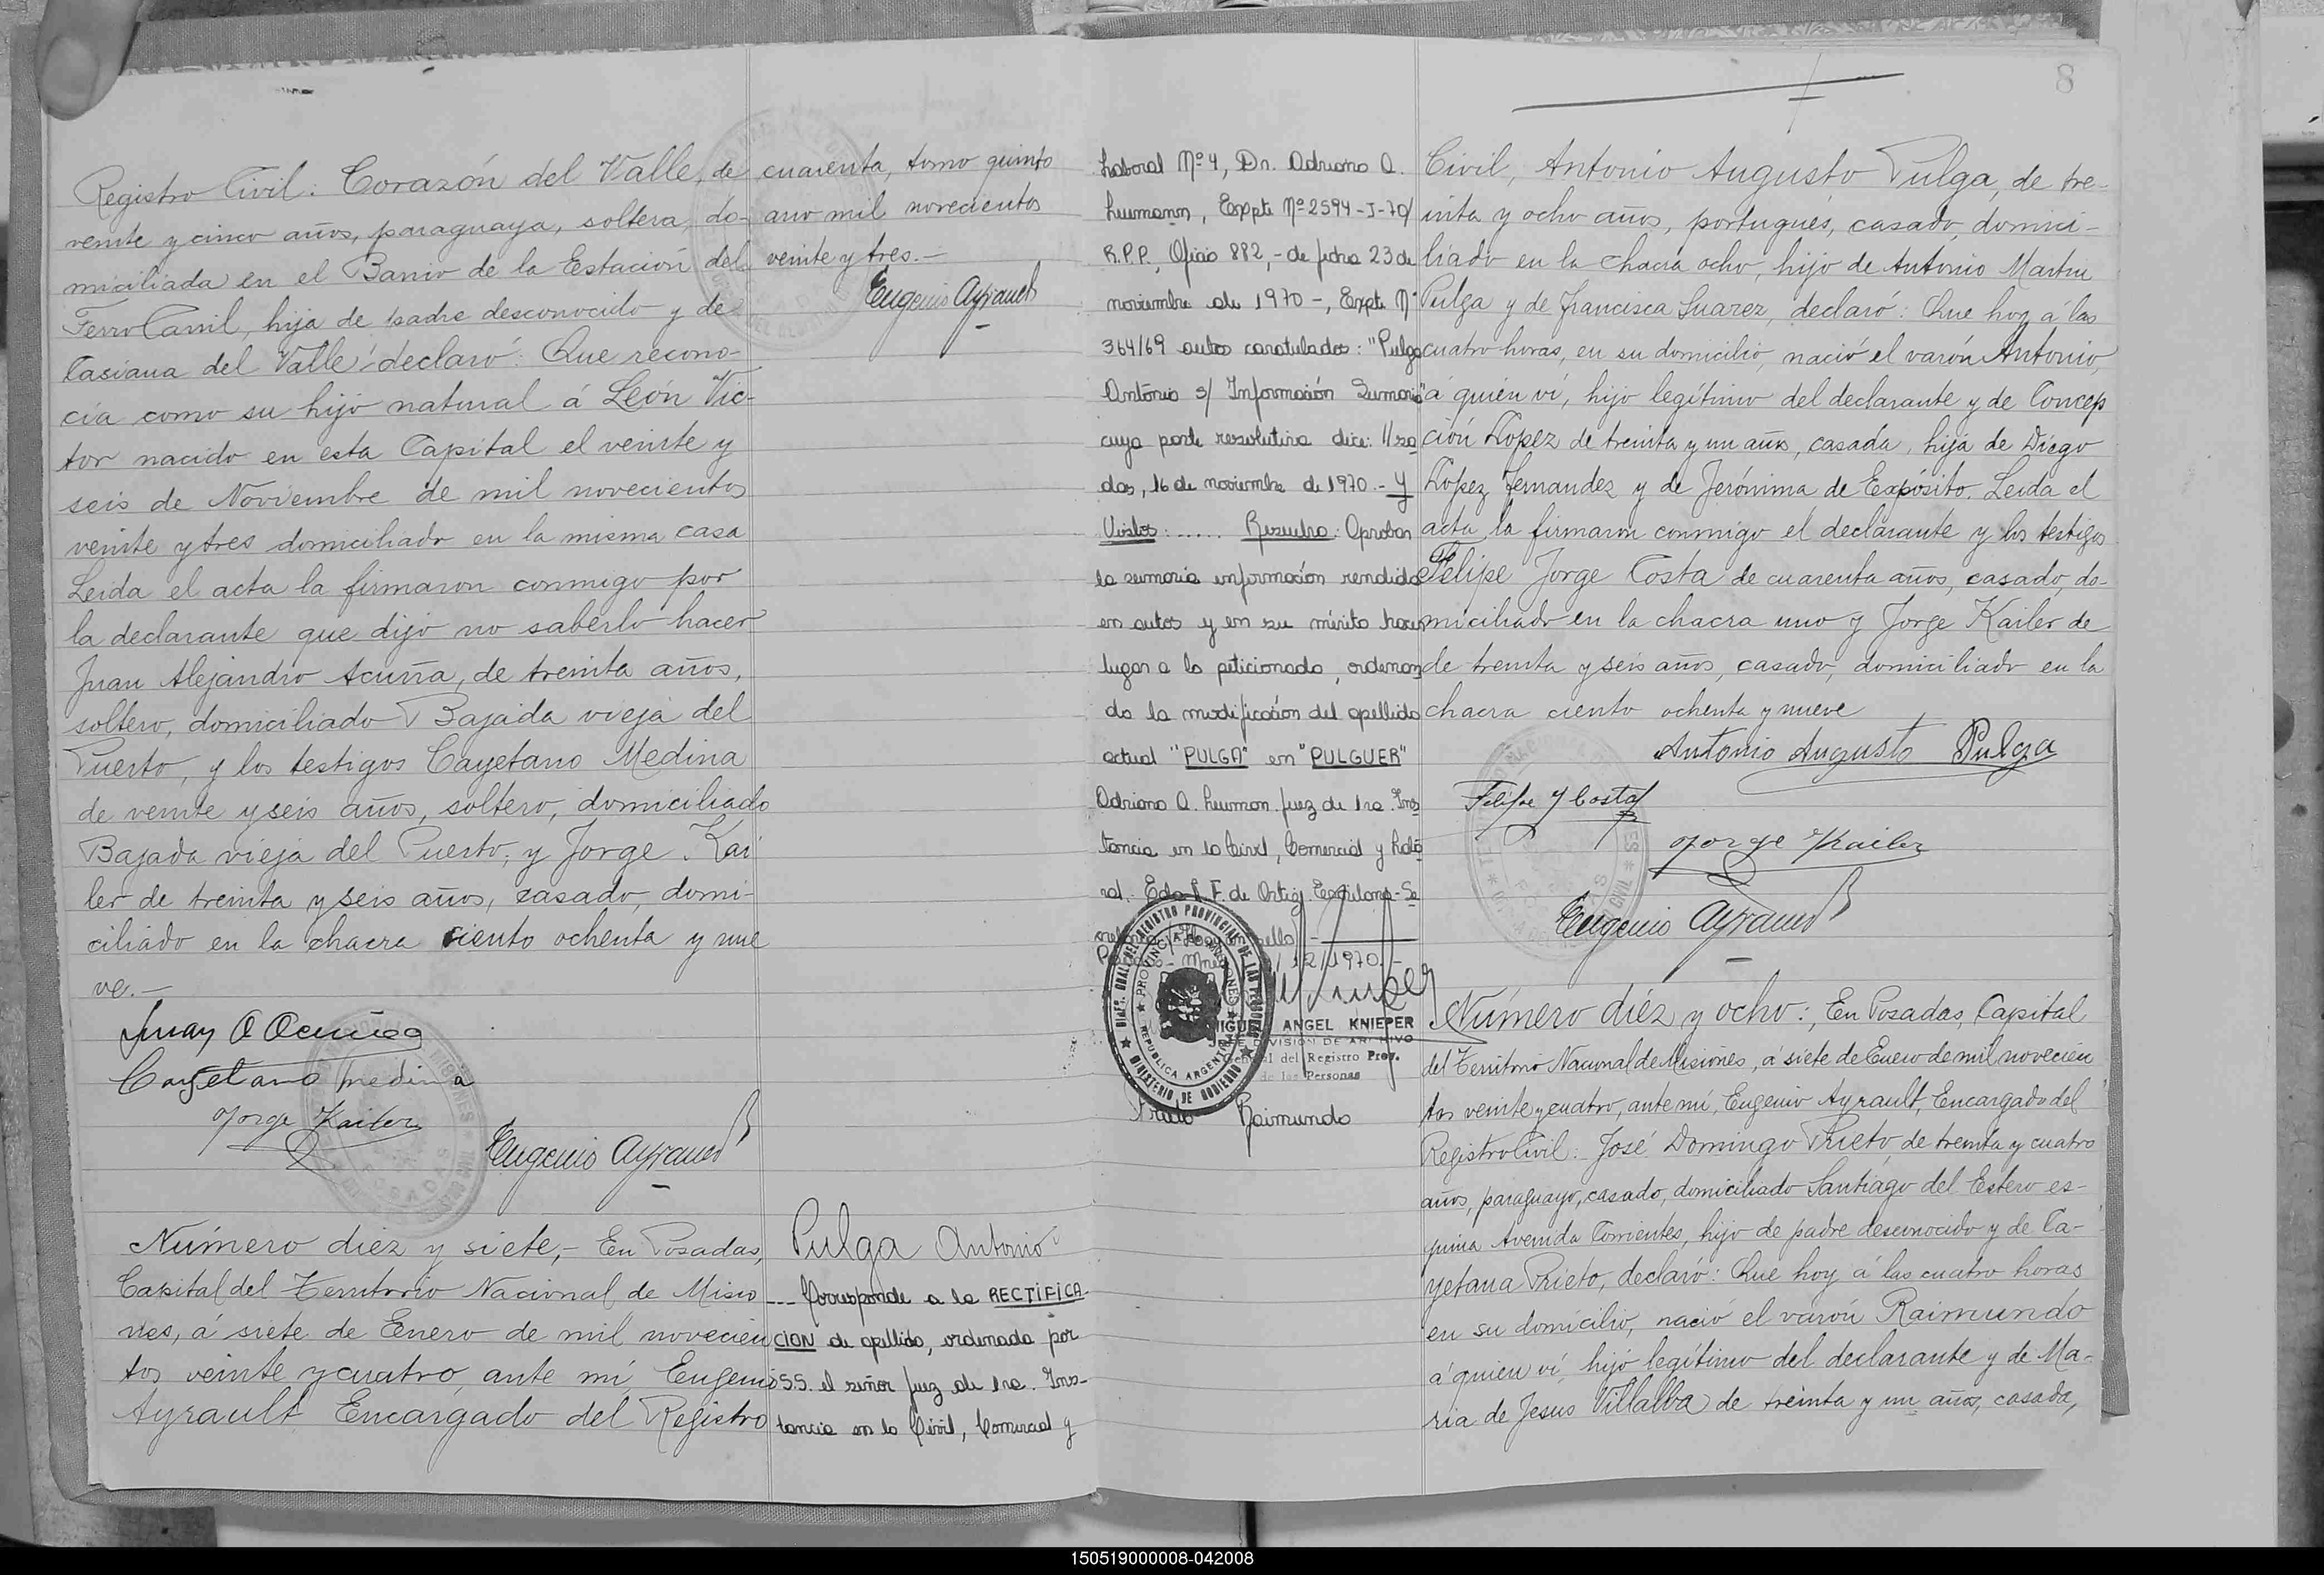 Registro Civil: Corazón del Valle, de
veinte y cinco años, paraguaya, soltera, do-
miciliada en el Barrio de la Estación del
Ferro Carril, hija de padre desconocido y de
Casiana del Valle, declaró: Que recono-
cía como su hijo natural á León Vic-
tor nacido en esta Capital el veinte y
seis de Noviembre de mil novecientos
veinte y tres domiciliado en la misma casa
Leida el acta la firmaron conmigo por
la declarante que dijo no saberlo hacer
Juan Alejandro Acuña, de treinta años,
soltero, domiciliado Bajada vieja del
Puerto, y los testigos Cayetano Medina
de veinte y seis años, soltero, domiciliado
Bajada vieja del Puerto, y Jorge Kai
ler de treinta y seis años, casado, domi-
ciliado en la chacra ciento ochenta y nue
ve.-
Juan A Acuña
Cayetano Medina
Jorge Kailer
Eugenio Ayrault
cuarenta, tomo quinto
ano mil novecientos
veinte y tres.-
Eugenio Ayrault
Número diez y siete,- En Posadas,
Capital del Territorio Nacional de Misio
nes, á siete de Enero de mil novecien
tos veinte y cuatro, ante mí, Eugenio
Ayrault Encargado del Registro
Pulga Antonio
--- Corresponde a la RECTIFICA-
CION de apellido, ordenada por
S.S. el señor Juez de 1ra. Ins-
tancia en lo Civil, Comercial y
Laboral Nº 4, Dr. Adriano A.
Expte Nº 2594-J-70/
R.P.P., Oficio 882,- de fecha 23 de
noviembre de 1970 -, Expte Nº
364/69 autos caratulados: "Pulga
Antonio s/ Información Sumaria"
cuya parte resolutiva dice: //sa
das, 16 de noviembre de 1970.- Y
Vistos: ...... Resuelvo: Aprobar
la sumaria información rendida
en autos y en su mérito hacer
lugar a lo peticionado, ordenan
do la modificación del apellido
actual "PULGA" en "PULGUER"
Adriano A. Juez de 1ra. Ins
tancia en lo Civil, Comercial y Labo
ral. F. de Ortiz
12/1970.-
MIGUEL ANGEL KNIEPER
DIVISION DE ARCHIVO
General del Registro Prov.
de las Personas
DIREC. GRAL. DEL REGISTRO PROVINCIAL DE LAS PERSONAS
MINISTERIO DE GOBIERNO
PROVINCIA DE MISIONES
REPUBLICA ARGENTINA
Prieto Raimundo
8
Civil, Antonio Augusto Pulga, de tre-
inta y ocho años, portugués, casado, domici-
liado en la chacra ocho, hijo de Antonio Martin
Pulga y de Francisca Suarez, declaró: Que hoy á las
cuatro horas, en su domicilio, nació el varón Antonio,
á quien ví, hijo legítimo del declarante y de Concep
ción Lopez de treinta y un años, casada, hija de Diego
Lopez Fernandez y de Jerónima de Expósito. Leida el
acta la firmaron conmigo el declarante y los testigos
Felipe Jorge Costa de cuarenta años, casado, do-
miciliado en la chacra uno y Jorge Kailer de
de treinta y seis años, casado, domiciliado en la
chacra ciento ochenta y nueve
Antonio Augusto Pulga
Felipe J Costa
Jorge Kailer
Eugenio Ayrault
Número diéz y ocho:, En Posadas, Capital
del Territorio Nacional de Misiones, á siete de Enero de mil novecien
tos veinte y cuatro, ante mí, Eugenio Ayrault, Encargado del
Registro Civil: José Domingo Prieto, de treinta y cuatro
años, paraguayo, casado, domiciliado Santiago del Estero es-
quina Avenida Corrientes, hijo de padre desconocido y de Ca-
yetana Prieto, declaró: Que hoy á las cuatro horas
en su domicilio, nació el varón Raimundo
á quien ví, hijo legítimo del declarante y de Ma-
ria de Jesus Villalba de treinta y un años, casada,
150519000008-042008